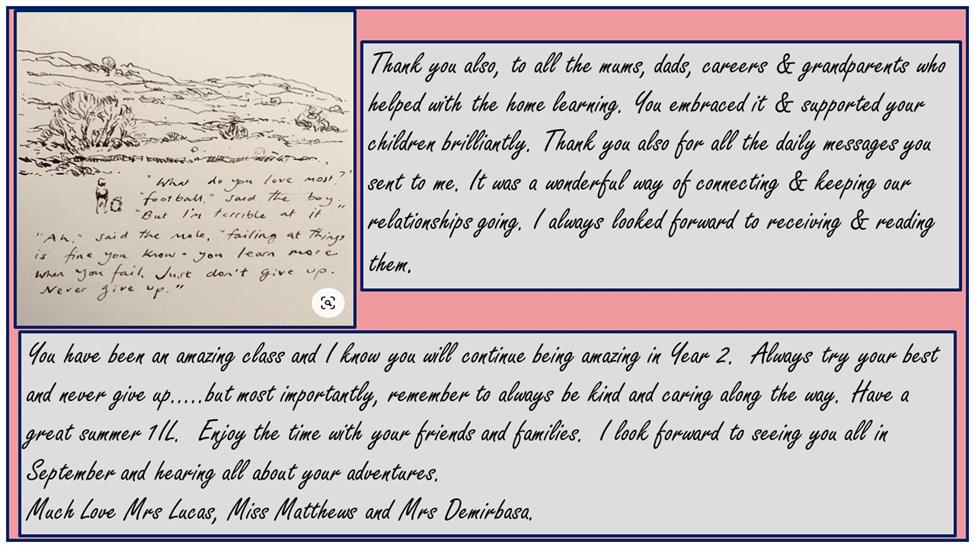 "What do you love most?"
"football," said the boy,
"But I'm terrible at it
"Ah," said the mole, "failing at things
is fine you know - you learn more
when you fail. Just don't give up.
Never give up."
Thank you also, to all the mums, dads, careers & grandparents who
helped with the home learning. You embraced it & supported your
children brilliantly. Thank you also for all the daily messages you
sent to me. It was a wonderful way of connecting & keeping our
relationships going. I always looked forward to receiving & reading
them.
You have been an amazing class and I know you will continue being amazing in Year 2. Always try your best
and never give up.....but most importantly, remember to always be kind and caring along the way. Have a
great summer 1IL. Enjoy the time with your friends and families. I look forward to seeing you all in
September and hearing all about your adventures.
Much Love Mrs Lucas, Miss Matthews and Mrs Demirbasa.